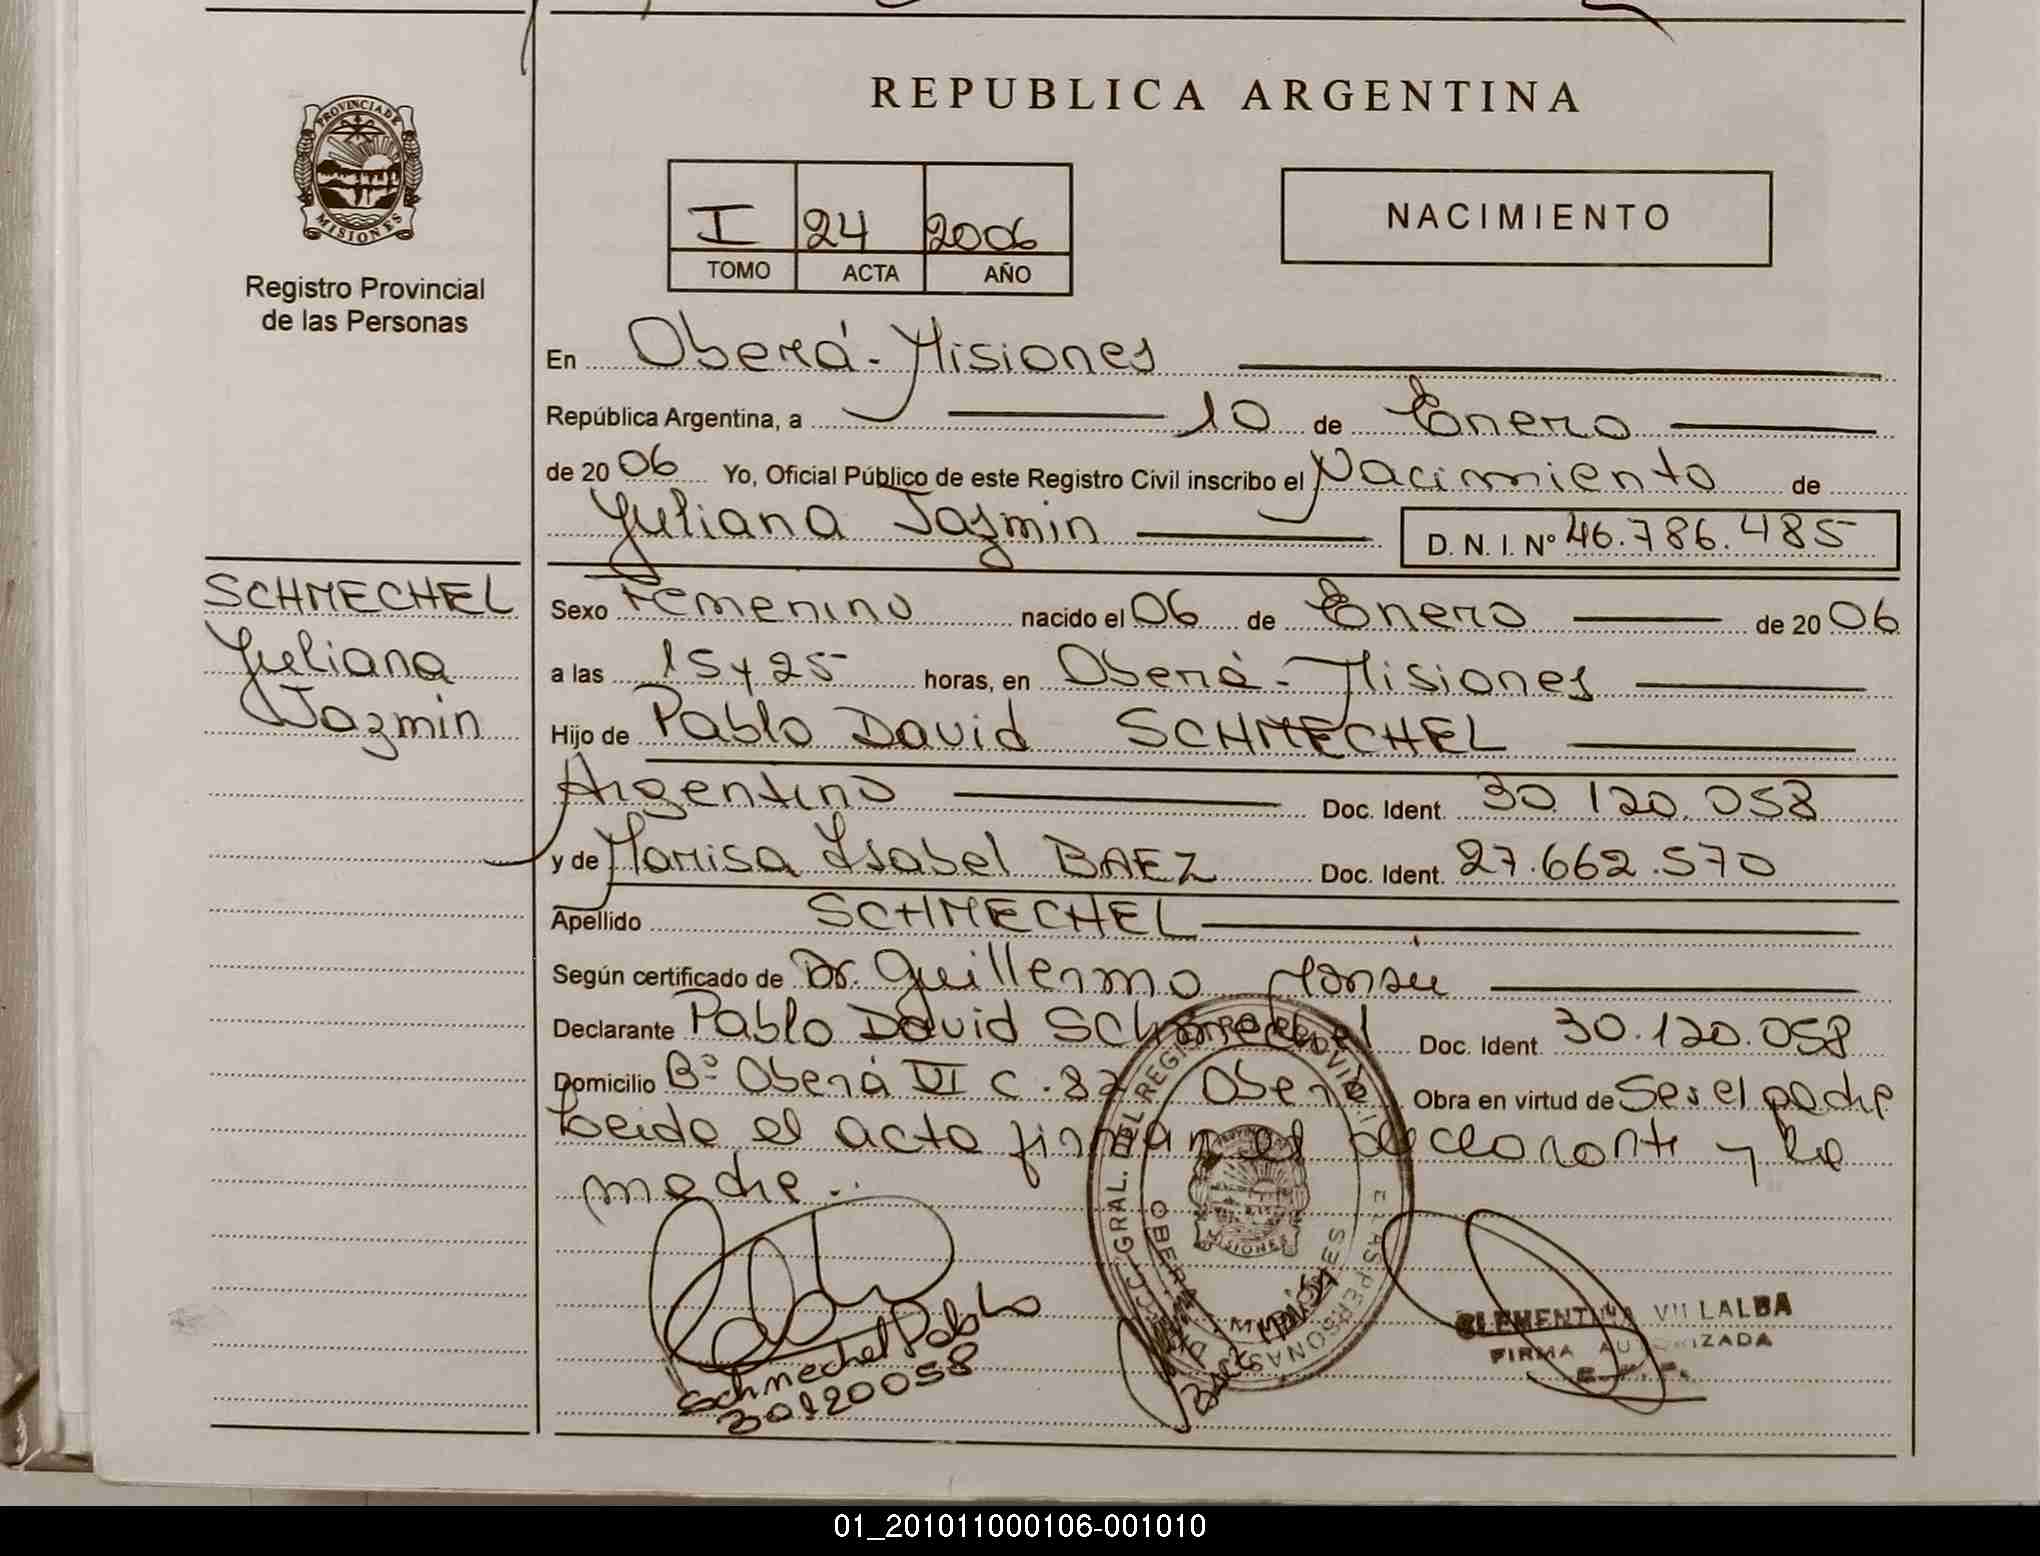 PROVINCIA DE
MISIONES
Registro Provincial
de las Personas
REPUBLICA ARGENTINA
I 24 2006
TOMO ACTA AÑO
NACIMIENTO
En Oberá - Misiones
República Argentina, a 10 de Enero
de 20 06 Yo, Oficial Público de este Registro Civil inscribo el Nacimiento de
Yuliana Jazmin D. N. I. Nº 46.786.485
SCHMECHEL
Yuliana
Jazmin
Sexo Femenino nacido el 06 de Enero de 20 06
a las 15 y 25 horas, en Oberá - Misiones
Hijo de Pablo David SCHMECHEL
Argentino Doc. Ident. 30.120.058
y de Marisa Isabel BAEZ Doc. Ident. 27.662.570
Apellido SCHMECHEL
Según certificado de Dr. Guillermo
Declarante Pablo David Schmechel Doc. Ident. 30.120.058
Domicilio Bº Oberá VI C. 82 Oberá Obra en virtud de Ser el padre
Leida el acta firman el declarante y la
madre.
Schmechel Pablo
30120058
CLEMENTINA VILLALBA
FIRMA AUTORIZADA
01_201011000106-001010